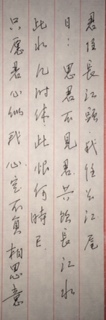 君住長江頭我住長江尾
日:思君不見君共飲長江水
此水几时休此恨何時已
只應君心似我心定不負相思意